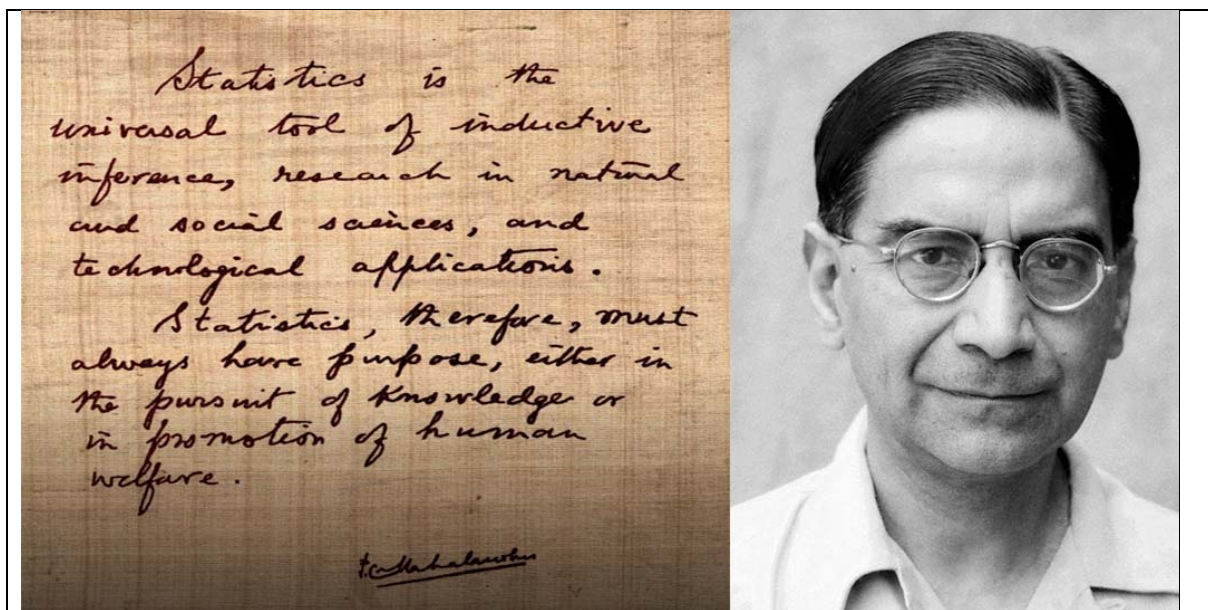 Statistics is the
universal tool of inductive
inference, research in natural
and social sciences, and
technological applications.
Statistics, therefore, must
always have purpose, either in
the pursuit of knowledge or
in promotion of human
welfare.
P.C. Mahalanobis